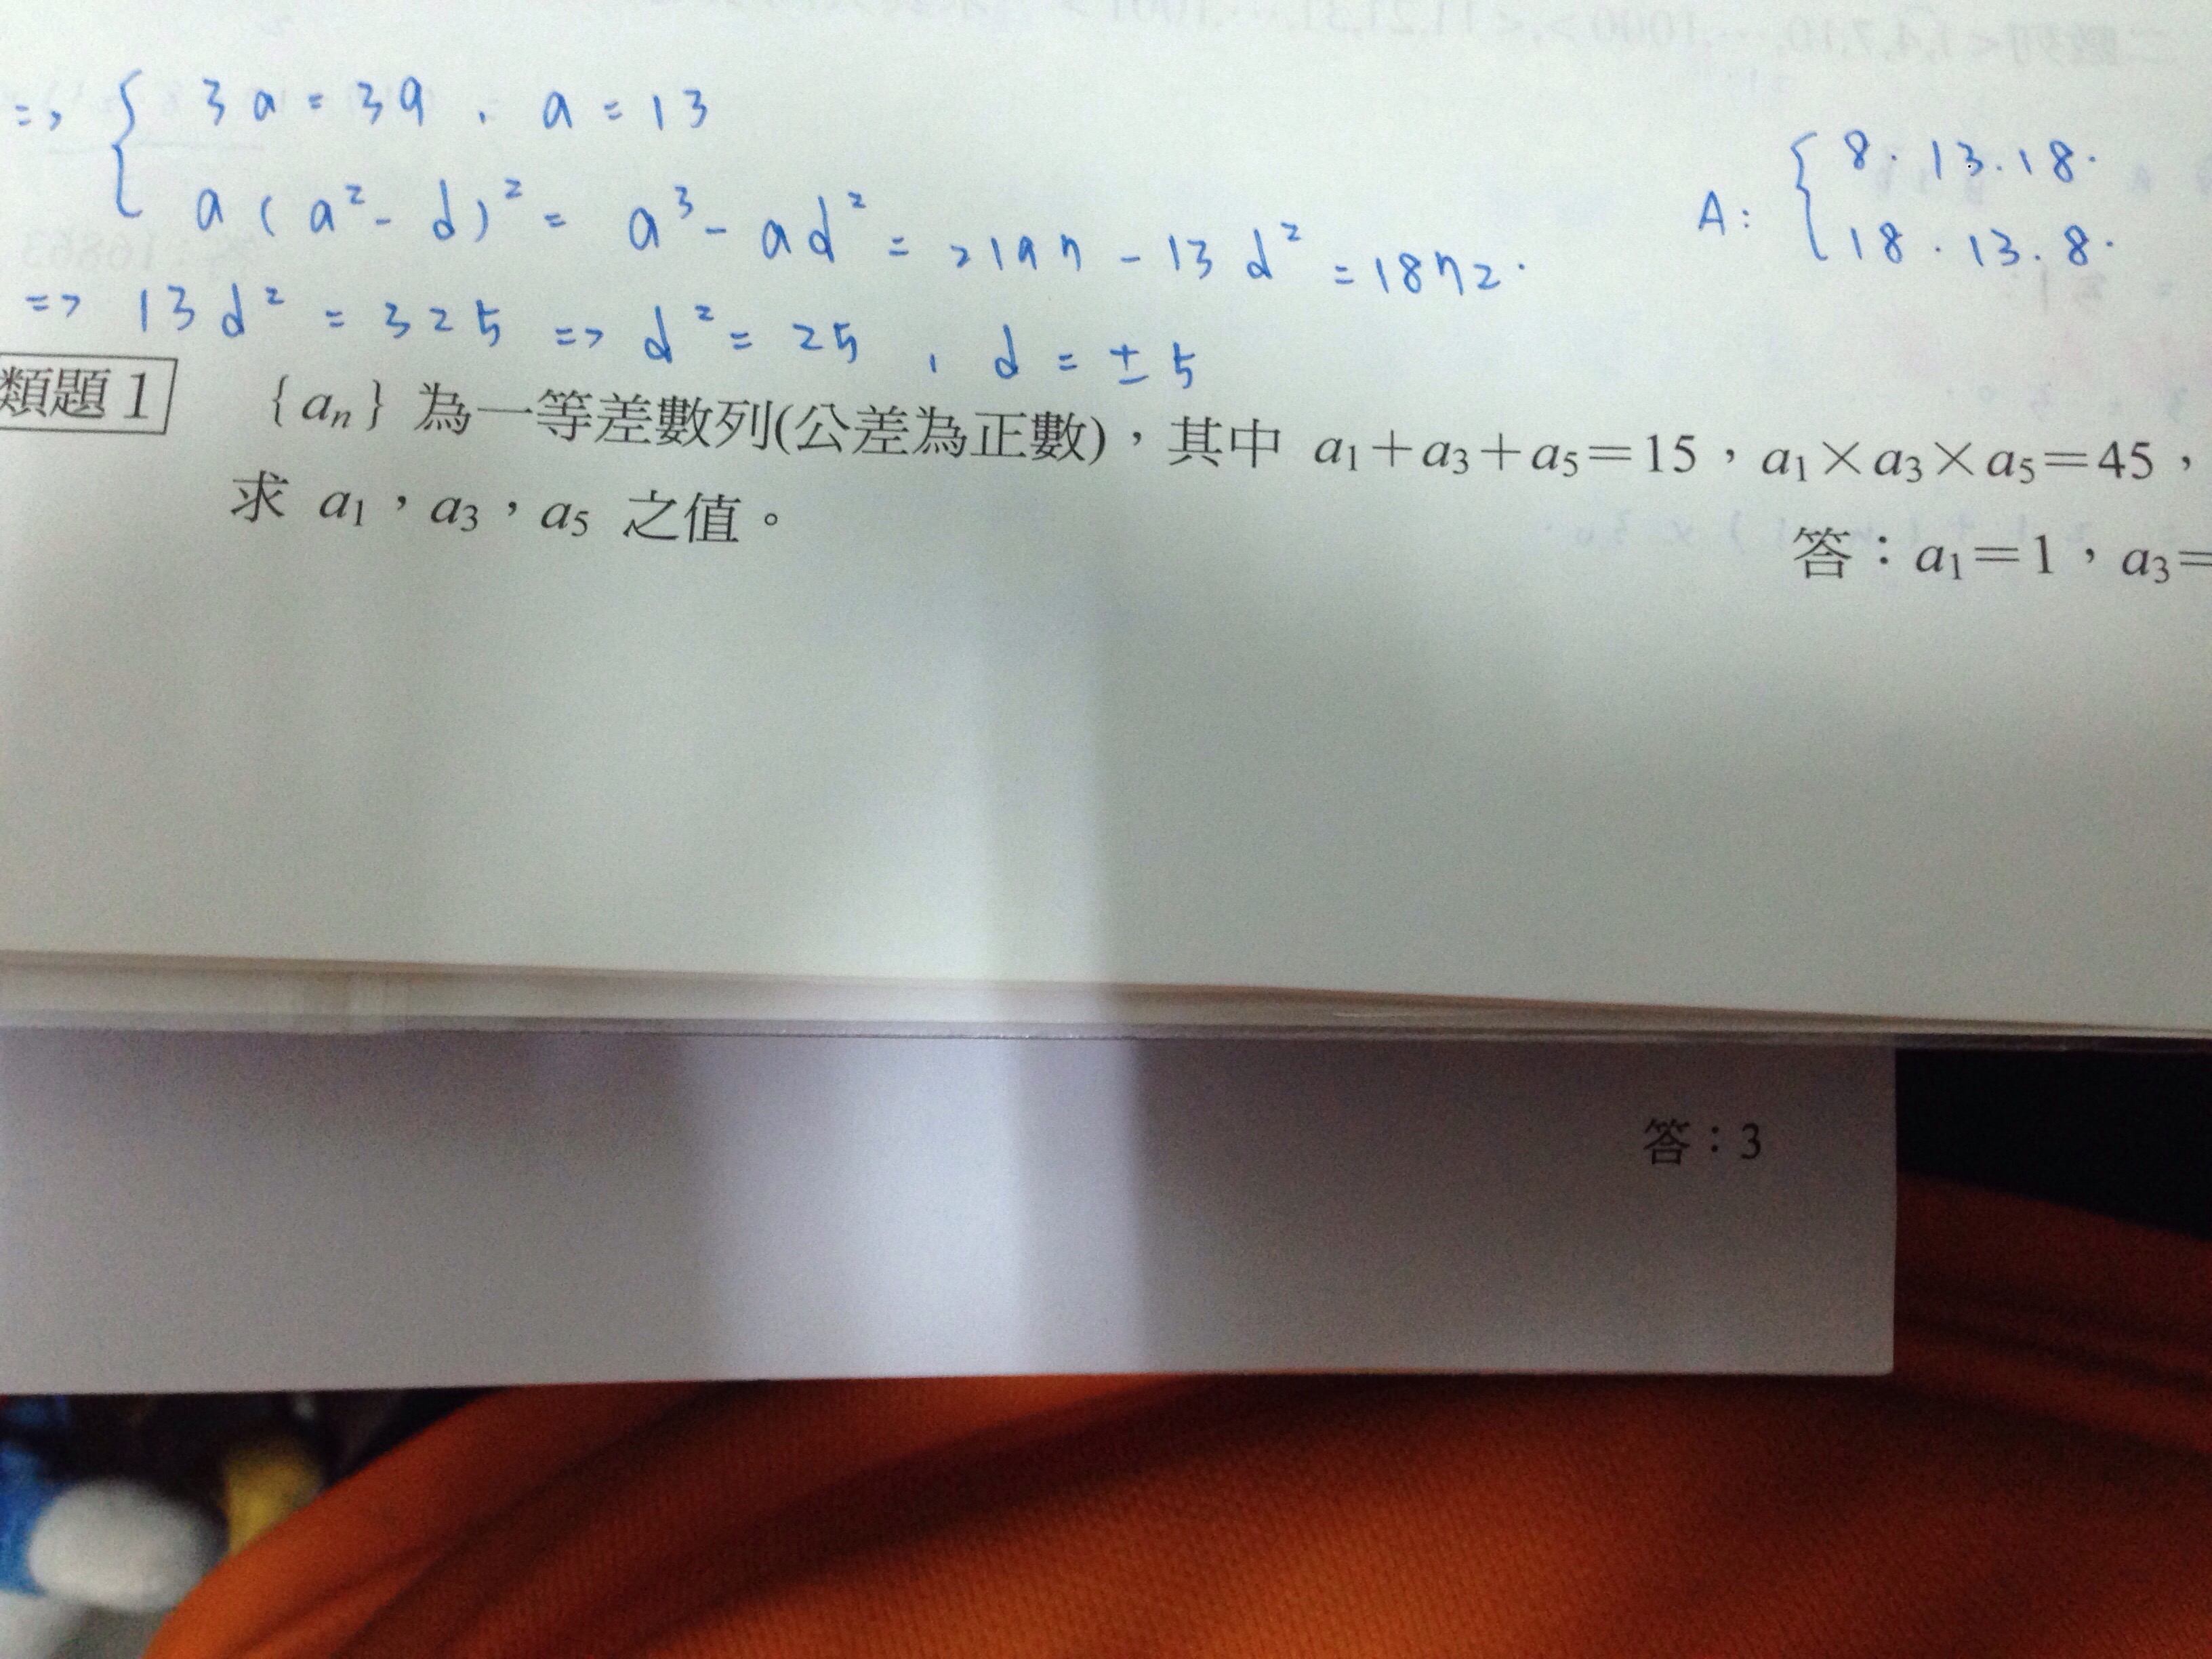 => { 3a = 39 , a = 13
a ( a² - d )² = a³ - ad² = 2197 - 13d² = 1872.
A: { 8 . 13 . 18 .
18 . 13 . 8 .
=> 13d² = 325 => d² = 25 , d = ±5
類題 1 {aₙ} 為一等差數列(公差為正數)，其中 a₁+a₃+a₅=15，a₁×a₃×a₅=45，
求 a₁，a₃，a₅ 之值。
答：a₁=1，a₃=
答：3